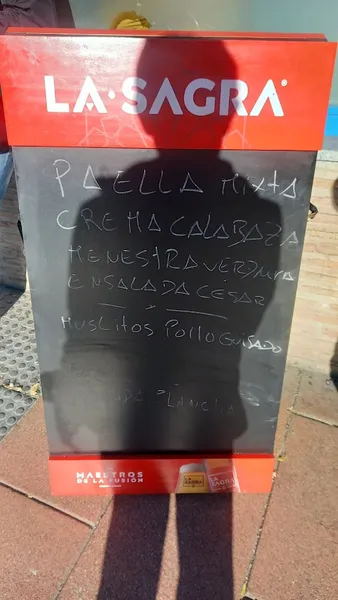 LA·SAGRA®
PAELLA MIXTA
CREMA CALABAZA
MENESTRA VERDURA
ENSALADA CÉSAR
MUSLITOS POLLO GUISADO
PLANCHA
MAESTROS
DE LA FUSIÓN
LA SAGRA
SAGRA